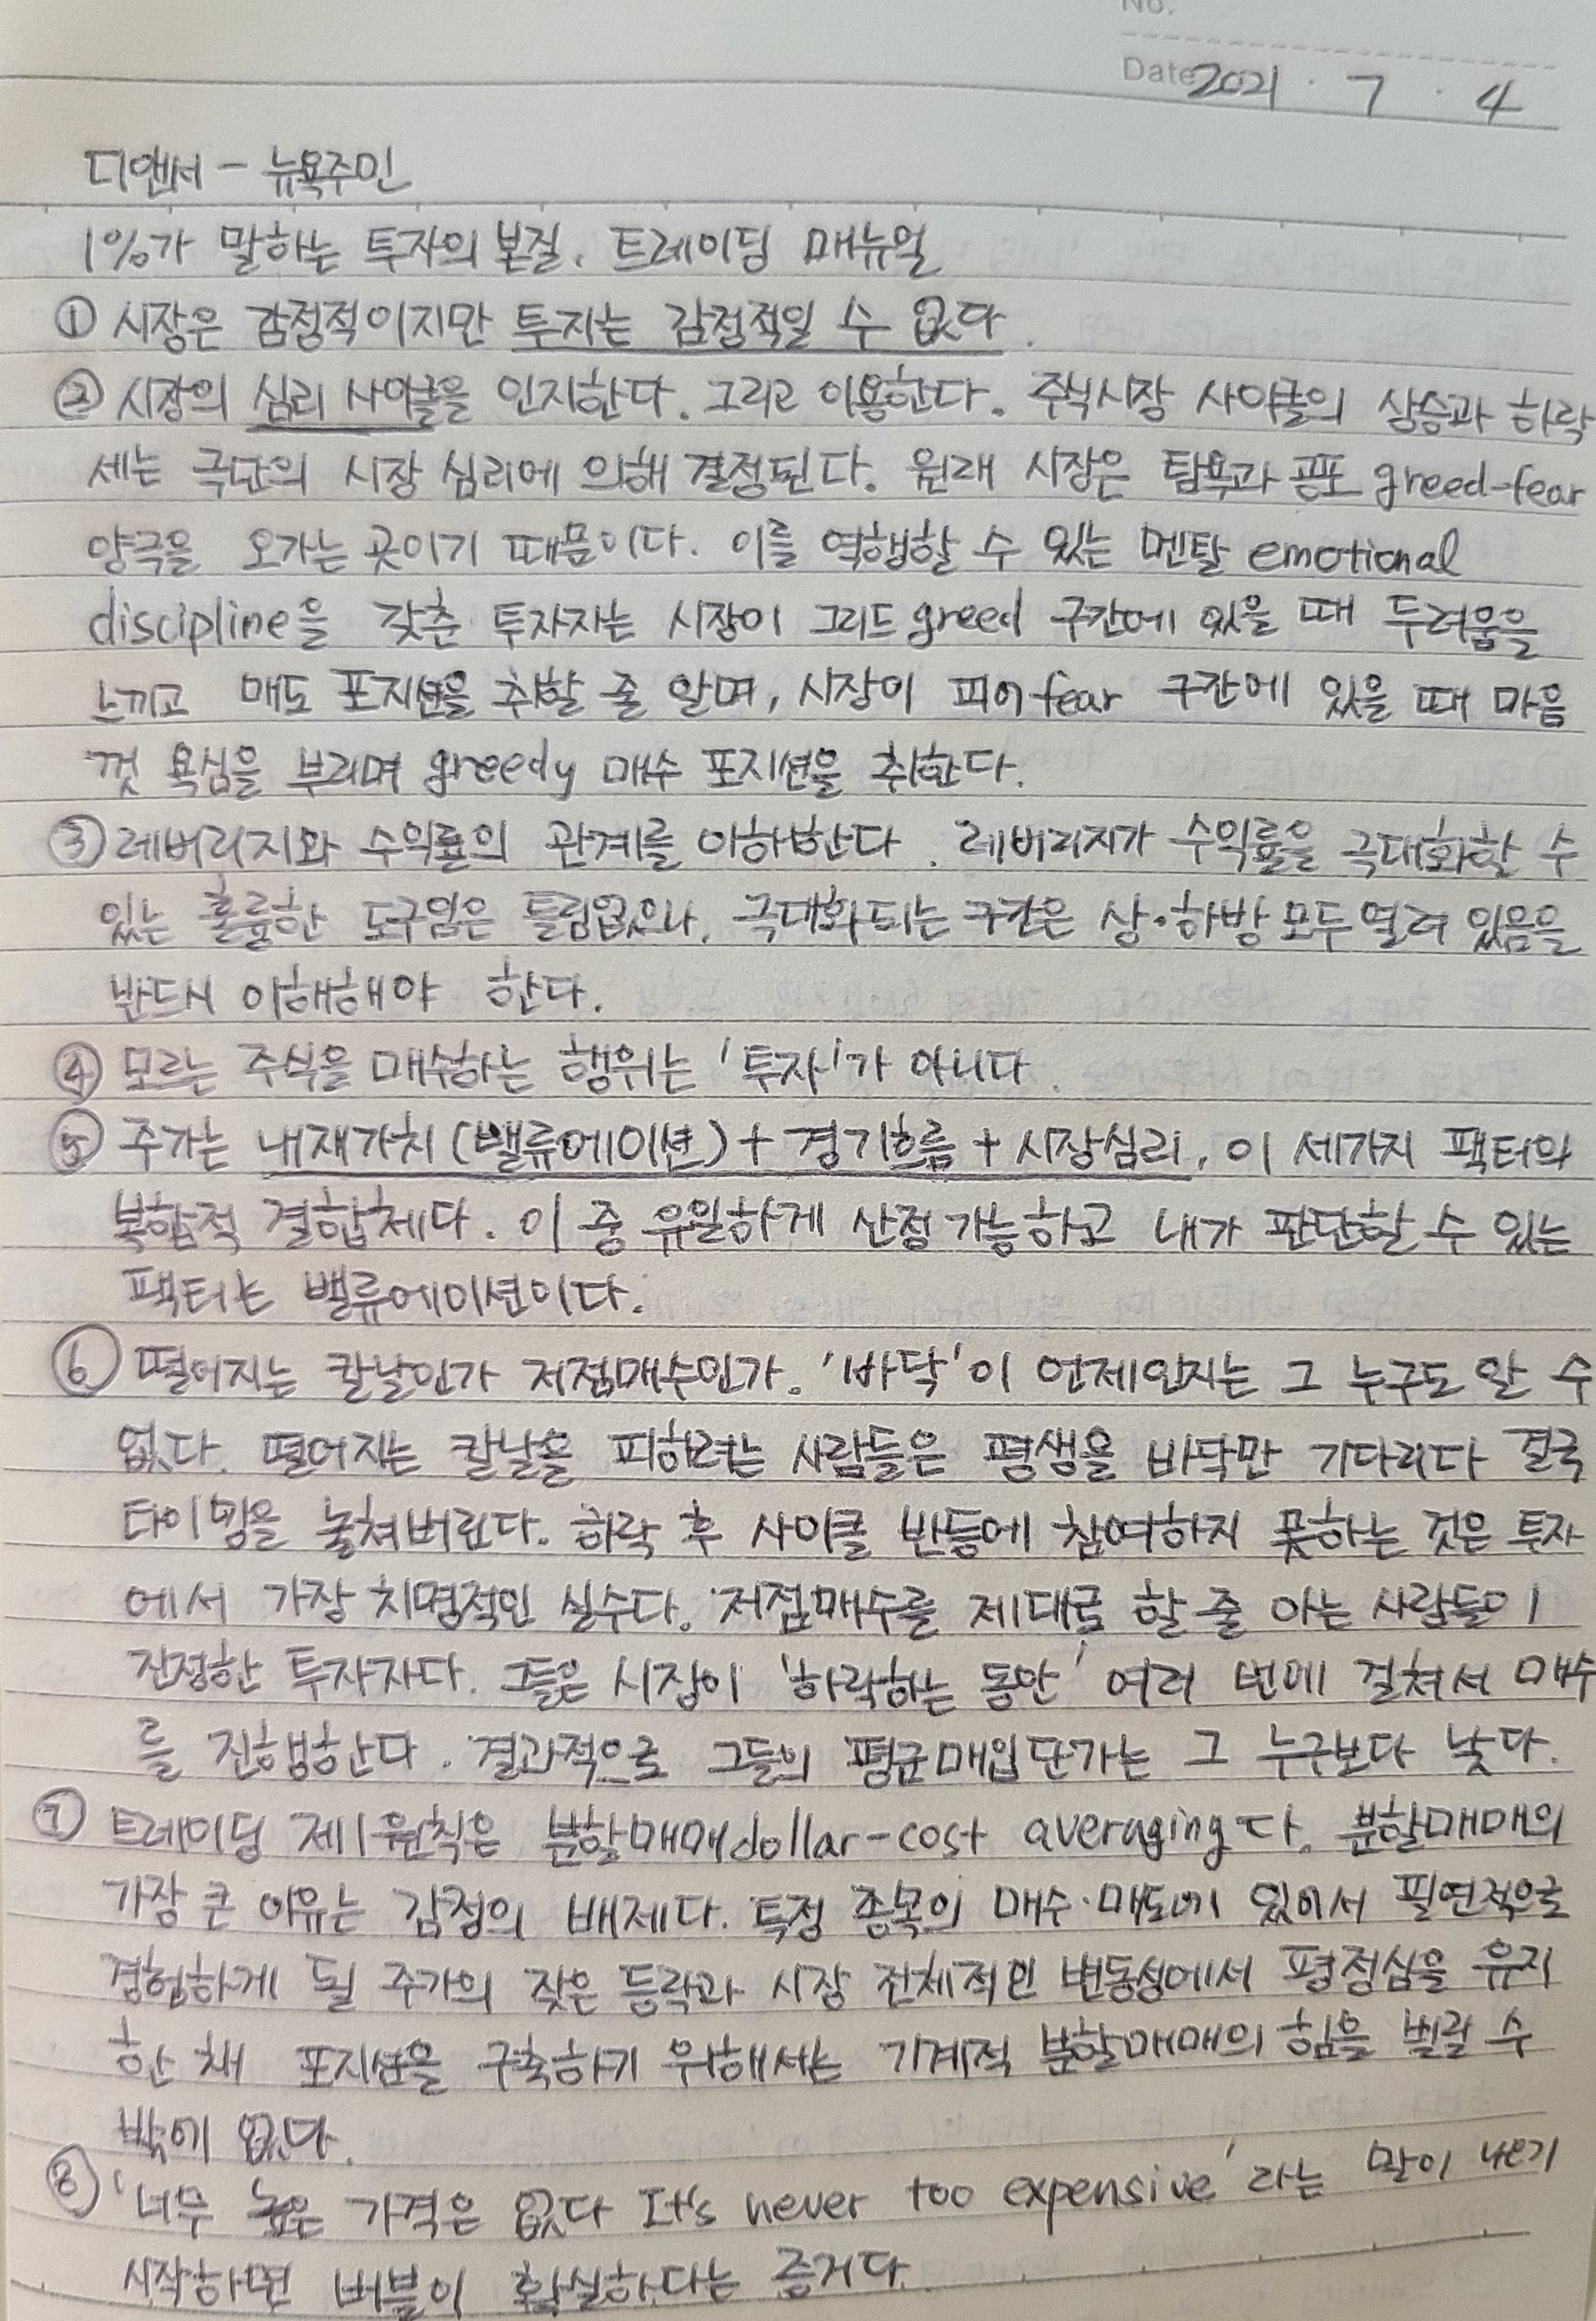 No.
Date 2021 . 7 . 4
디앤서 - 뉴욕주민
1%가 말하는 투자의 본질. 트레이딩 매뉴얼
① 시장은 감정적이지만 투자는 감정적일 수 없다.
② 시장의 심리 사이클을 인지한다. 그리고 이용한다. 주식시장 사이클의 상승과 하락
세는 극단의 시장 심리에 의해 결정된다. 원래 시장은 탐욕과 공포 greed-fear
양극을 오가는 곳이기 때문이다. 이를 역행할 수 있는 멘탈 emotional
discipline을 갖춘 투자자는 시장이 그리드 greed 구간에 있을 때 두려움을
느끼고 매도 포지션을 취할 줄 알며, 시장이 피어 fear 구간에 있을 때 마음
껏 욕심을 부리며 greedy 매수 포지션을 취한다.
③ 레버리지와 수익률의 관계를 이해한다. 레버리지가 수익률을 극대화할 수
있는 훌륭한 도구임은 틀림없으나, 극대화되는 구간은 상·하방 모두 열려 있음을
반드시 이해해야 한다.
④ 모르는 주식을 매수하는 행위는 '투자'가 아니다.
⑤ 주가는 내재가치(밸류에이션) + 경기흐름 + 시장심리, 이 세가지 팩터의
복합적 결합체다. 이 중 유일하게 산정가능하고 내가 판단할 수 있는
팩터는 밸류에이션이다.
⑥ 떨어지는 칼날인가 저점매수인가. '바닥'이 언제인지는 그 누구도 알 수
없다. 떨어지는 칼날을 피하려는 사람들은 평생을 바닥만 기다리다 결국
타이밍을 놓쳐버린다. 하락 후 사이클 반등에 참여하지 못하는 것은 투자
에서 가장 치명적인 실수다. 저점매수를 제대로 할 줄 아는 사람들이
진정한 투자자다. 그들은 시장이 '하락하는 동안' 여러 번에 걸쳐서 매수
를 진행한다. 결과적으로 그들의 평균매입단가는 그 누구보다 낮다.
⑦ 트레이딩 제1원칙은 분할매매 dollar-cost averaging다. 분할매매의
가장 큰 이유는 감정의 배제다. 특정 종목의 매수·매도에 있어서 필연적으로
경험하게 될 주가의 잦은 등락과 시장 전체적인 변동성에서 평정심을 유지
한 채 포지션을 구축하기 위해서는 기계적 분할매매의 힘을 빌릴 수
밖에 없다.
⑧ '너무 높은 가격은 없다 It's never too expensive'라는 말이 나오기
시작하면 버블이 확실하다는 증거다.